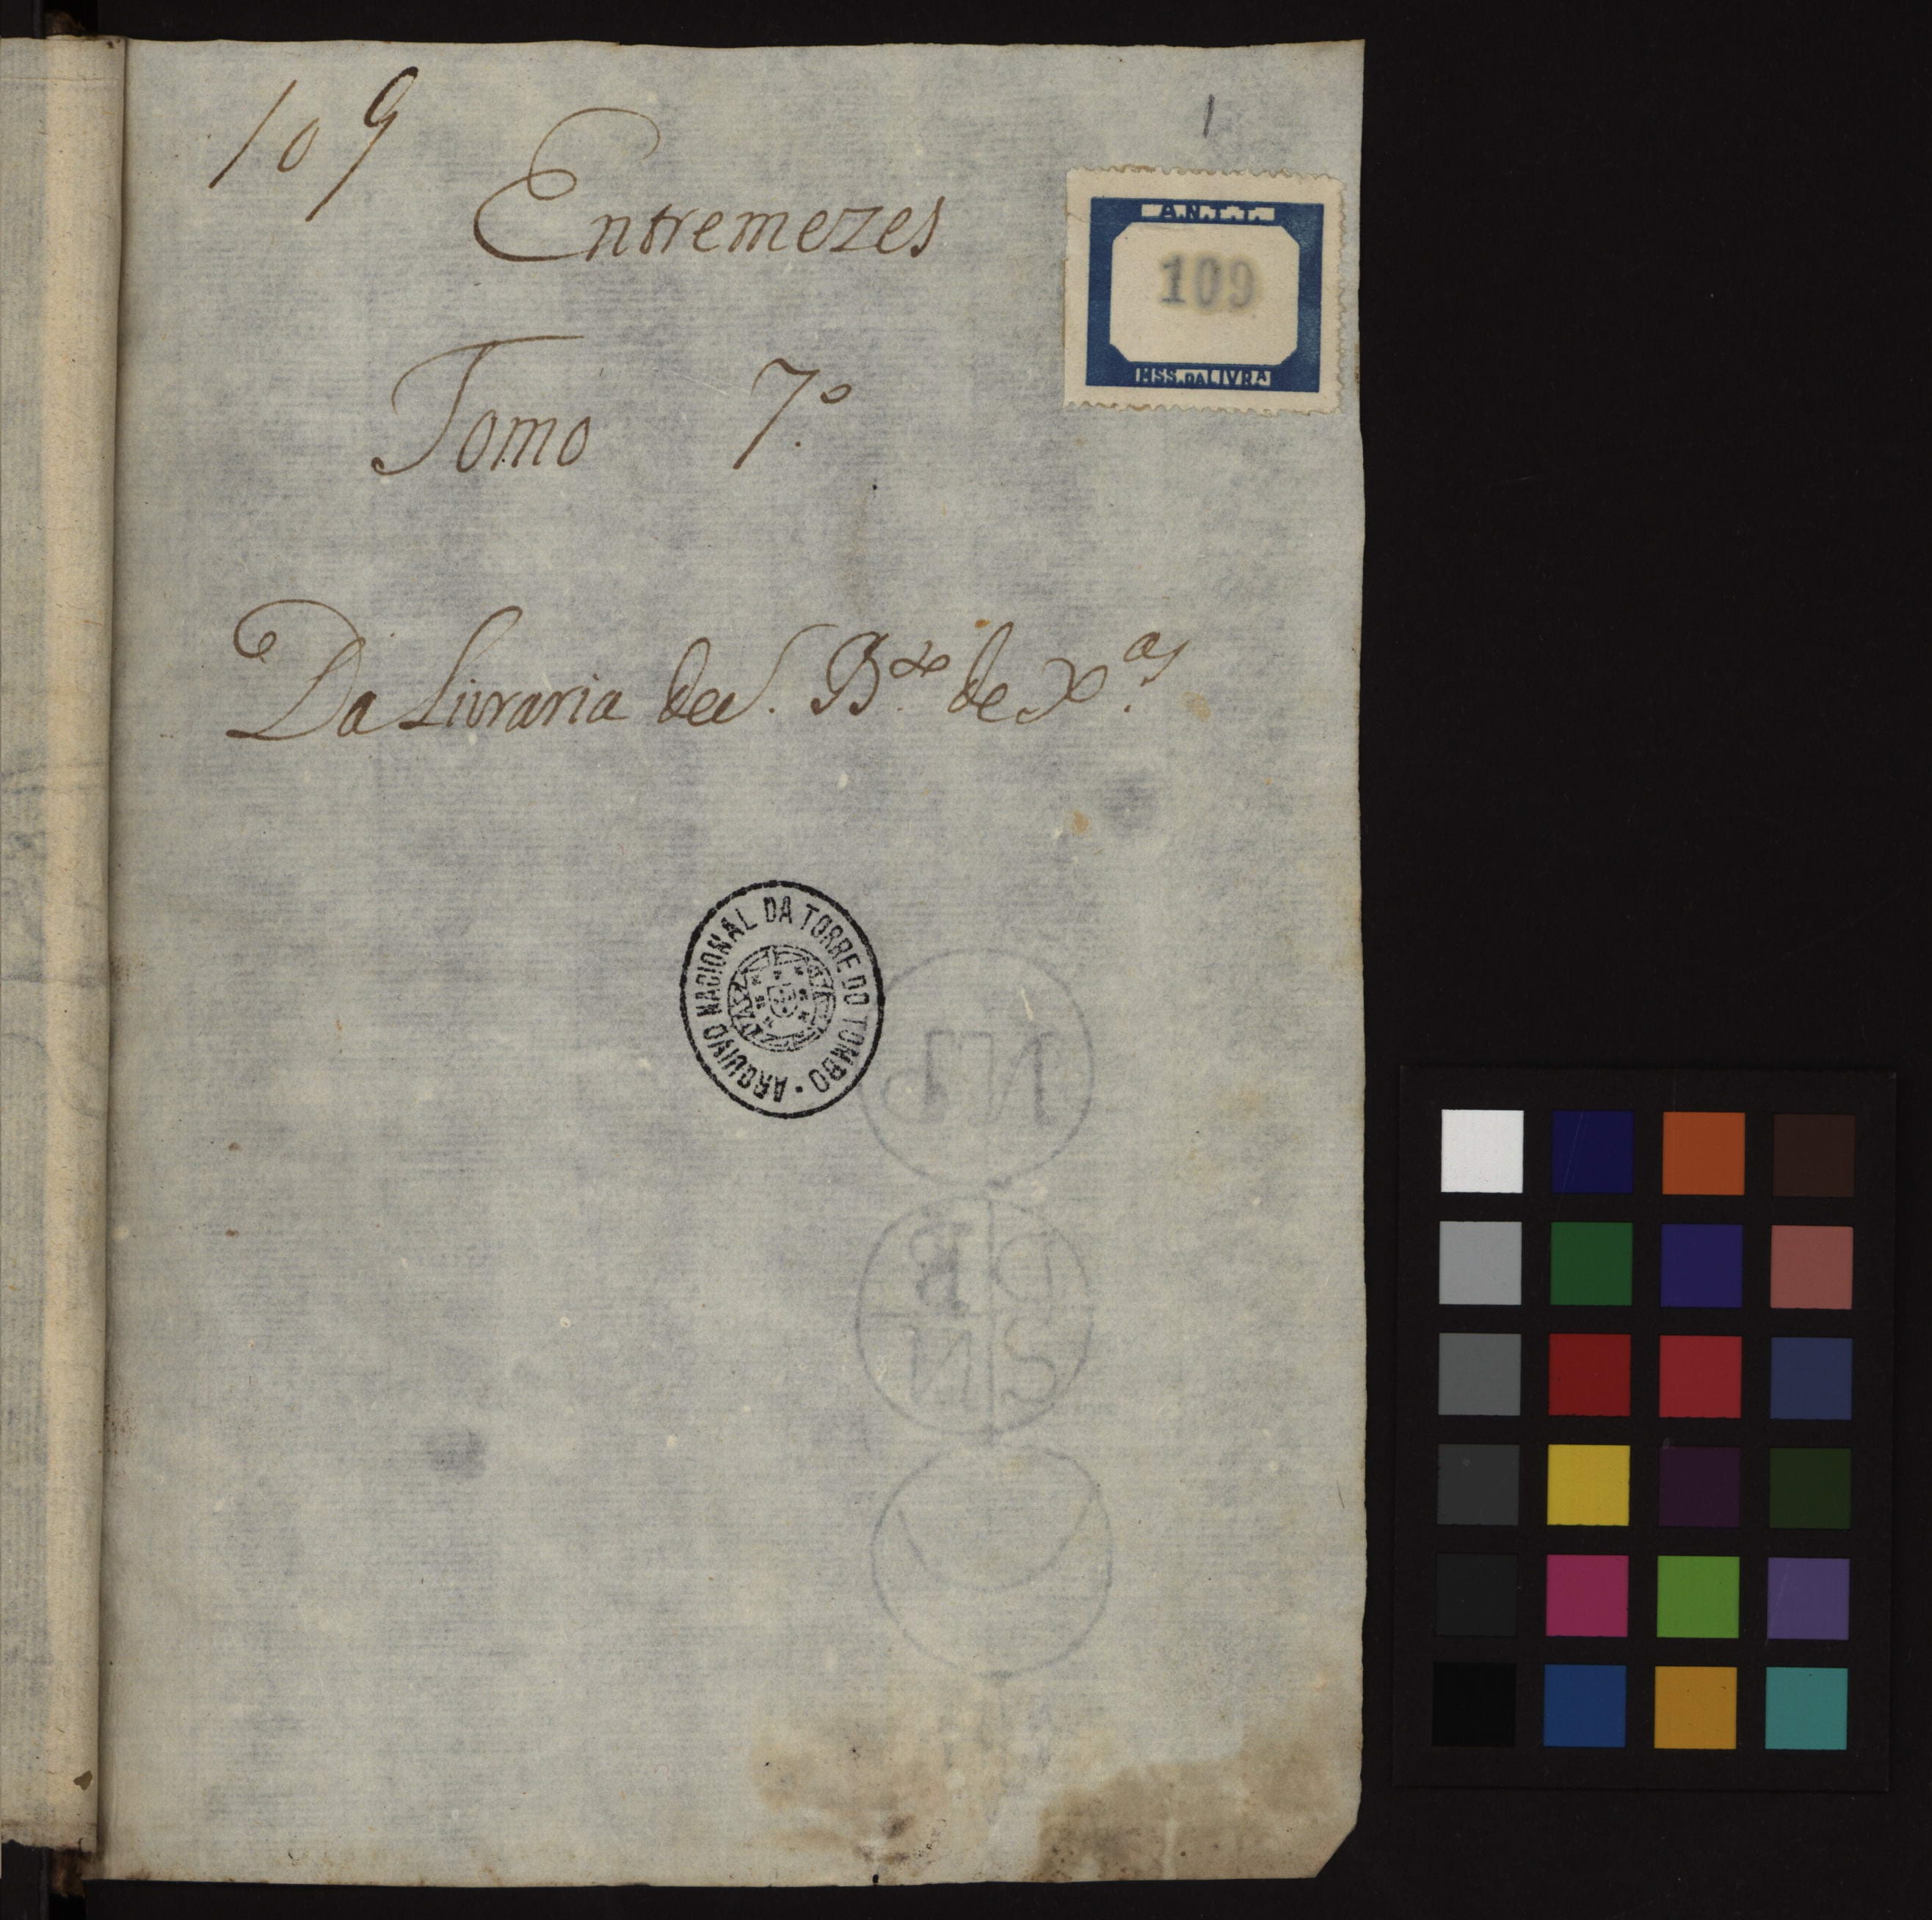 109
1
Entremezes
A.N.T.T.
109
MSS. DA LIVRA
Tomo 7.º
Da Livraria de S. B.to de X.as
ARQUIVO NACIONAL DA TORRE DO TOMBO